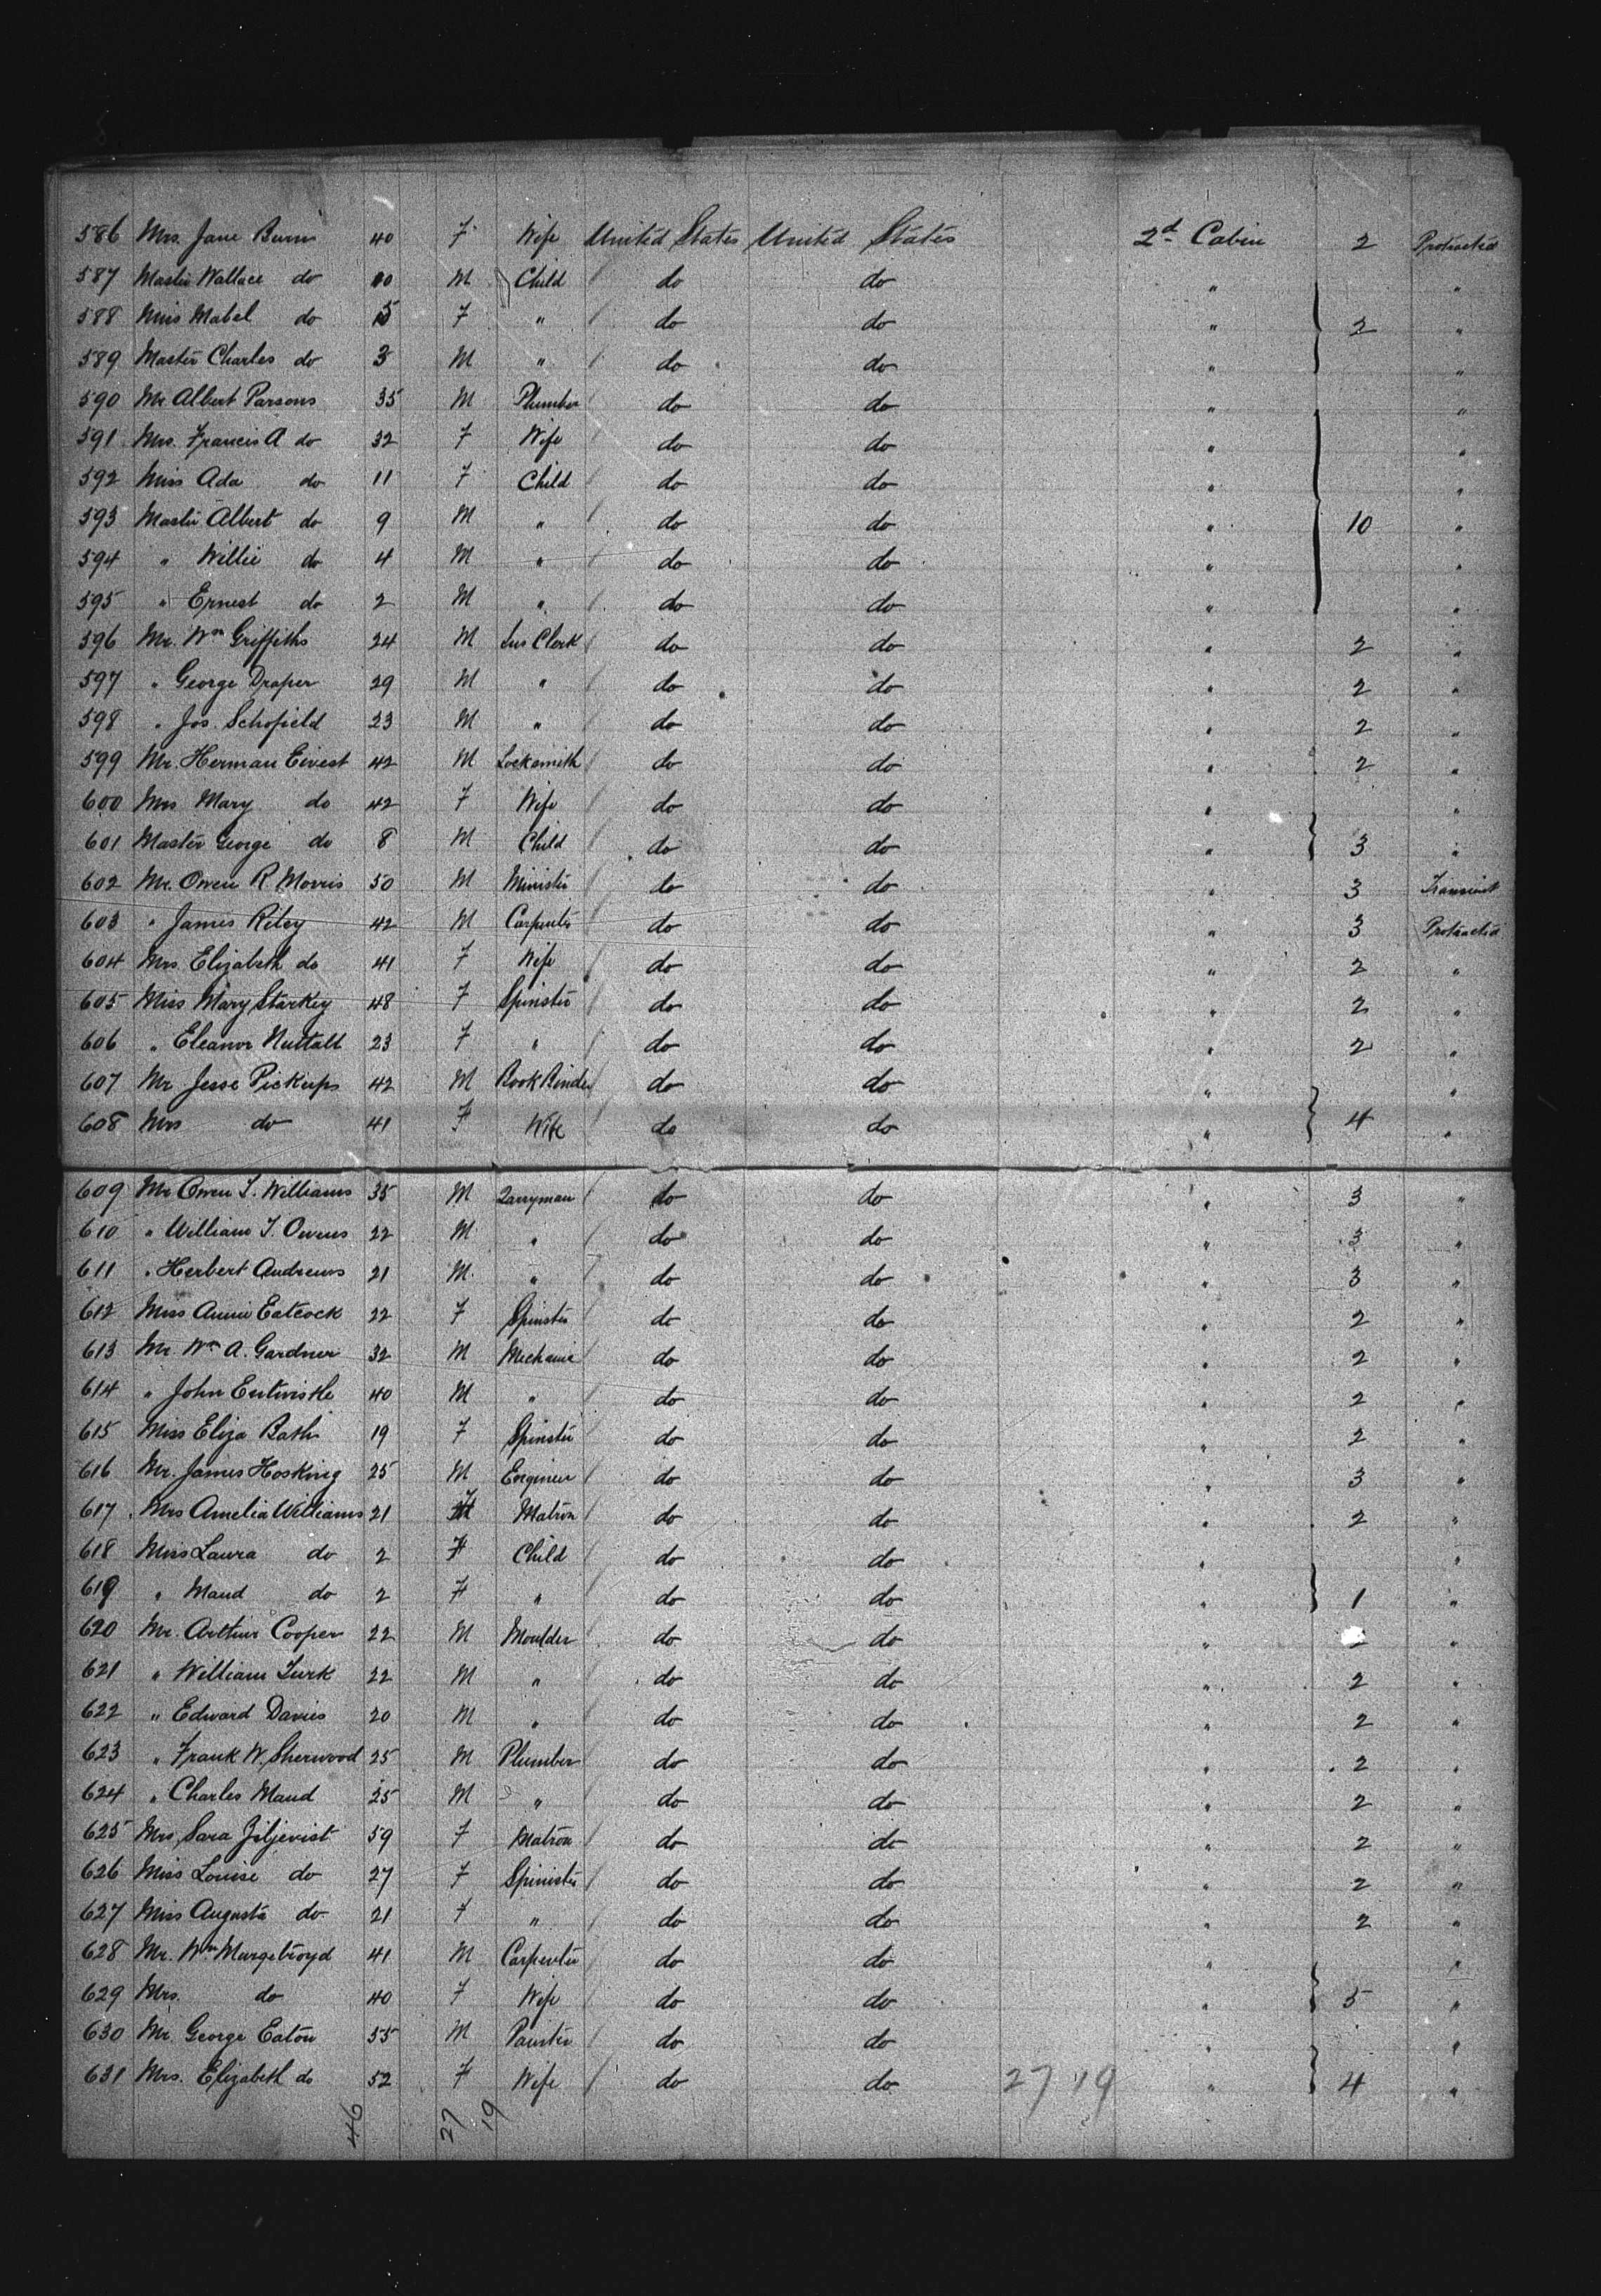 586 Mrs. Jane Burn 40 F Wife United States United States 2d Cabin 2 Protracted
587 Master Wallace do 10 M Child do do " "
588 Miss Mabel do 5 F " do do " 2 "
589 Master Charles do 3 M " do do " "
590 Mr. Albert Parsons 35 M Plumber do do " "
591 Mrs. Francis A do 32 F Wife do do " "
592 Miss Ada do 11 F Child do do " "
593 Master Albert do 9 M " do do " 10 "
594 " Willie do 4 M " do do " "
595 " Ernest do 2 M " do do " "
596 Mr. Wm Griffiths 24 M Ins Clerk do do " 2 "
597 " George Draper 29 M " do do " 2 "
598 " Jos. Schofield 23 M " do do " 2 "
599 Mr. Herman Eivest 42 M Locksmith do do " 2 "
600 Mrs Mary do 42 F Wife do do " "
601 Master George do 8 M Child do do " 3 "
602 Mr. Owen R. Morris 50 M Minister do do " 3 Transient
603 " James Riley 42 M Carpenter do do " 3 Protracted
604 Mrs. Elizabeth do 41 F Wife do do " 2 "
605 Miss Mary Starkey 48 F Spinster do do " 2 "
606 " Eleanor Nuttall 23 F " do do " 2 "
607 Mr Jesse Pickups 42 M Book Binder do do " "
608 Mrs do 41 F Wife do do " 4 "
609 Mr Owen T. Williams 35 M Qarryman do do " 3 "
610 " William T. Owens 22 M " do do " 3 "
611 " Herbert Andrews 21 M " do do " 3 "
612 Miss Annie Eatcock 22 F Spinster do do " 2 "
613 Mr. Wm A. Gardner 32 M Mechanic do do " 2 "
614 " John Entwistle 40 M " do do " 2 "
615 Miss Eliza Bath 19 F Spinster do do " 2 "
616 Mr. James Hosking 25 M Engineer do do " 3 "
617 Mrs Amelia Williams 21 F Matron do do " 2 "
618 Miss Laura do 2 F Child do do " "
619 " Maud do 2 F " do do " 1 "
620 Mr. Arthur Cooper 22 M Moulder do do " "
621 " William Turk 22 M " do do " 2 "
622 " Edward Davies 20 M " do do " 2 "
623 " Frank W. Sherwood 25 M Plumber do do " 2 "
624 " Charles Maud 25 M " do do " 2 "
625 Mrs. Sara Ziljevist 59 F Matron do do " 2 "
626 Miss Louise do 27 F Spinister do do " 2 "
627 Miss Augusta do 21 F " do do " 2 "
628 Mr. Wm Murgetroyd 41 M Carpenter do do " "
629 Mrs. do 40 F Wife do do " 5 "
630 Mr. George Eaton 55 M Painter do do " "
631 Mrs. Elizabeth do 52 F Wife do do 27 19 " 4 "
46 27 19